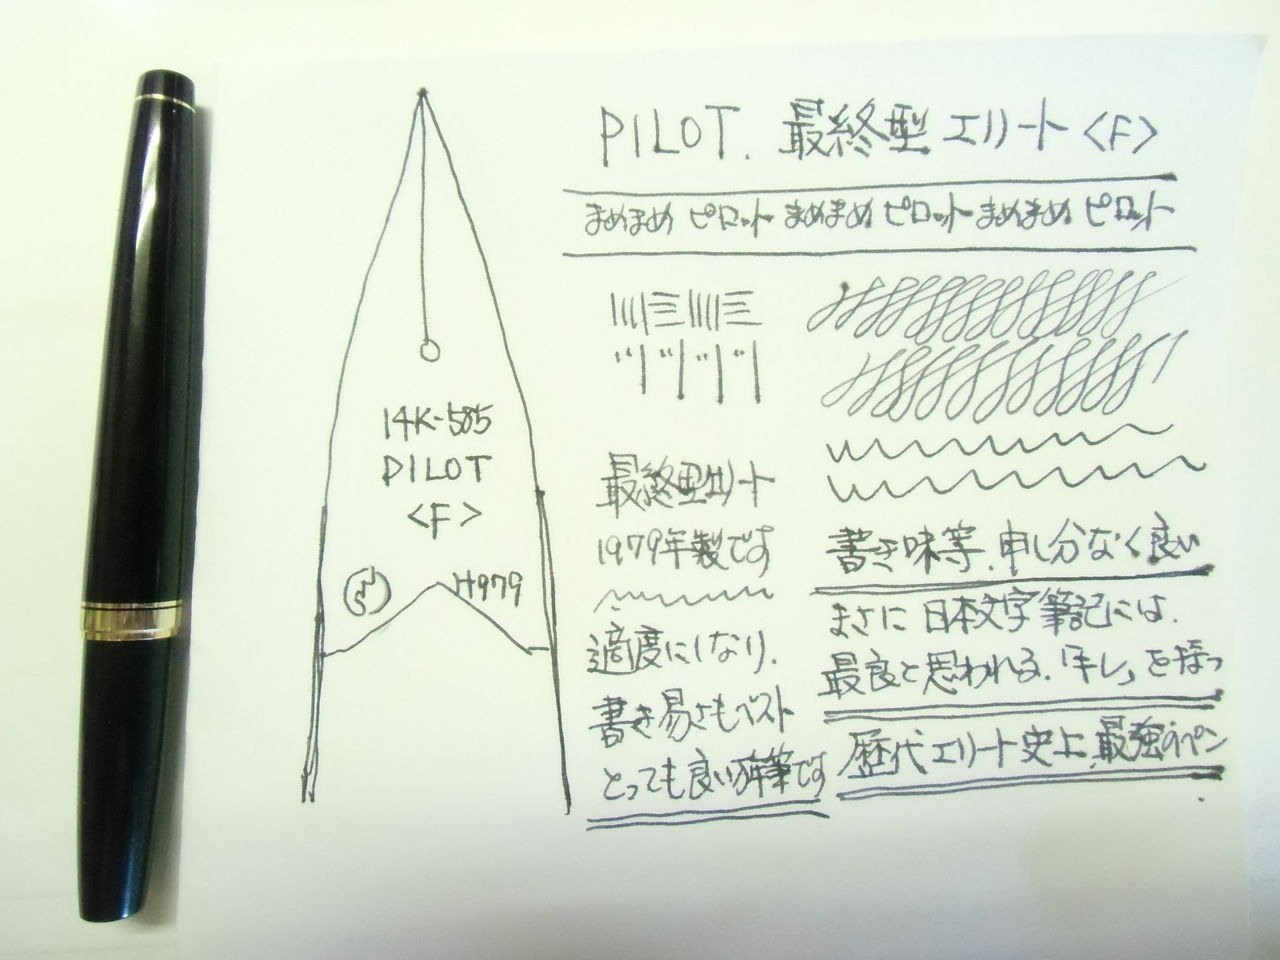 PILOT. 最終型エリート<F>
まめまめ ピロット まめまめ ピロット まめまめ ピロット
14K-585
PILOT
<F>
H979
最終型エリート
1979年製です
適度にしなり、
書き易さもベスト
とっても良い万年筆です
書き味等、申し分なく良い
まさに日本文字筆記には、
最良と思われる、「キレ」を持つ
歴代エリート史上、最強のペン